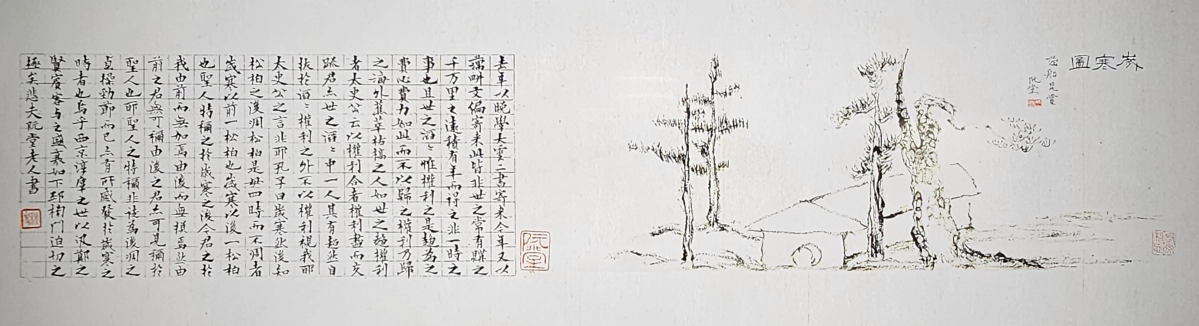 歲寒圖
藕船是賞
阮堂
阮堂
去年以晚學大雲二書寄來今年又以
藕耕文編寄來此皆非世之常有購之
千万里之遠積有年而得之非一時之
事也且世之滔〻惟權利之是趨爲之
費心費力如此而不以歸之權利乃歸
之海外蕉萃枯槁之人如世之趨權利
者太史公云以權利合者權利盡而交
踈君亦世之滔〻中一人其有超然自
拔於滔〻權利之外不以權利視我耶
太史公之言非耶孔子曰歲寒然後知
松柏之後凋松柏是毋四時而不凋者
歲寒以前一松柏也歲寒以後一松柏
也聖人特稱之於歲寒之後今君之於
我由前而無加焉由後而無損焉然由
前之君無可稱由後之君亦可見稱於
聖人也耶聖人之特稱非徒爲後凋之
貞操勁節而已亦有所感發於歲寒之
時者也烏乎西京淳厚之世以汲鄭之
賢賓客與之盛衰如下邳榜門迫切之
極矣悲夫阮堂老人書